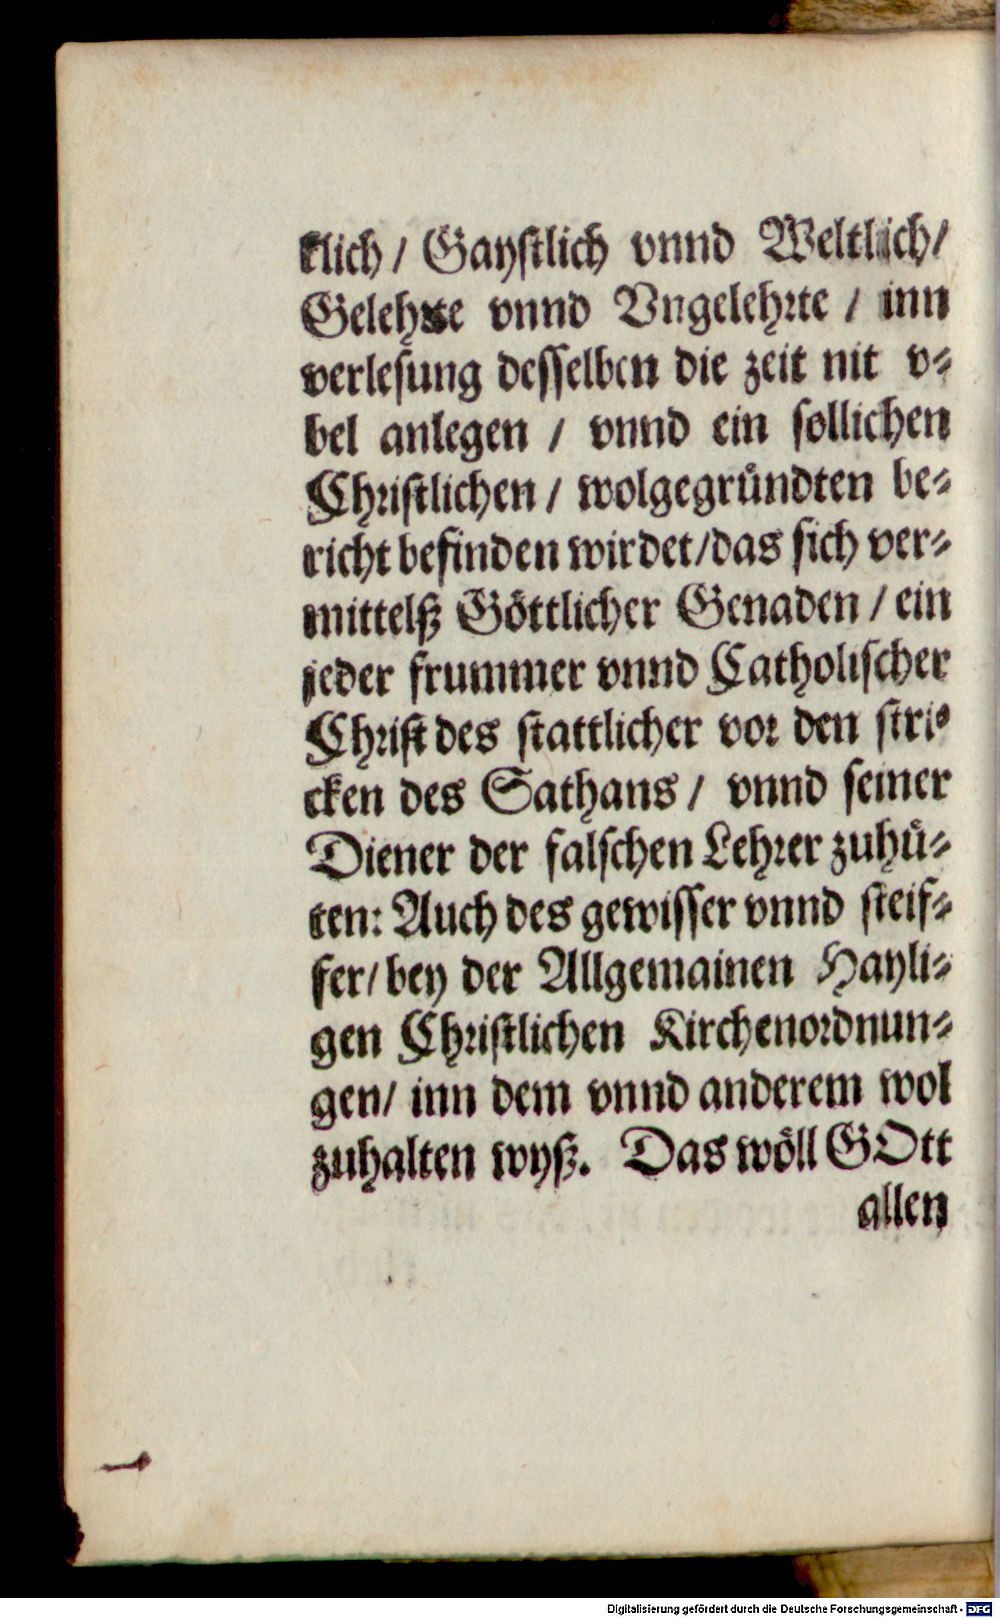 klich / Gaystlich vnnd Weltlich/
Gelehrte vnnd Vngelehrte / inn
verlesung desselben die zeit nit v⸗
bel anlegen / vnnd ein sollichen
Christlichen / wolgegruͤndten be⸗
richt befinden wirdet/das sich ver⸗
mittelß Goͤttlicher Genaden / ein
jeder frummer vnnd Catholischer
Christ des stattlicher vor den stri⸗
cken des Sathans / vnnd seiner
Diener der falschen Lehrer zuhuͤ⸗
ten: Auch des gewisser vnnd steif⸗
fer/ bey der Allgemainen Hayli⸗
gen Christlichen Kirchenordnun⸗
gen/ inn dem vnnd anderem wol
zuhalten wyß. Das woͤll GOtt
allen
Digitalisierung gefördert durch die Deutsche Forschungsgemeinschaft - DFG